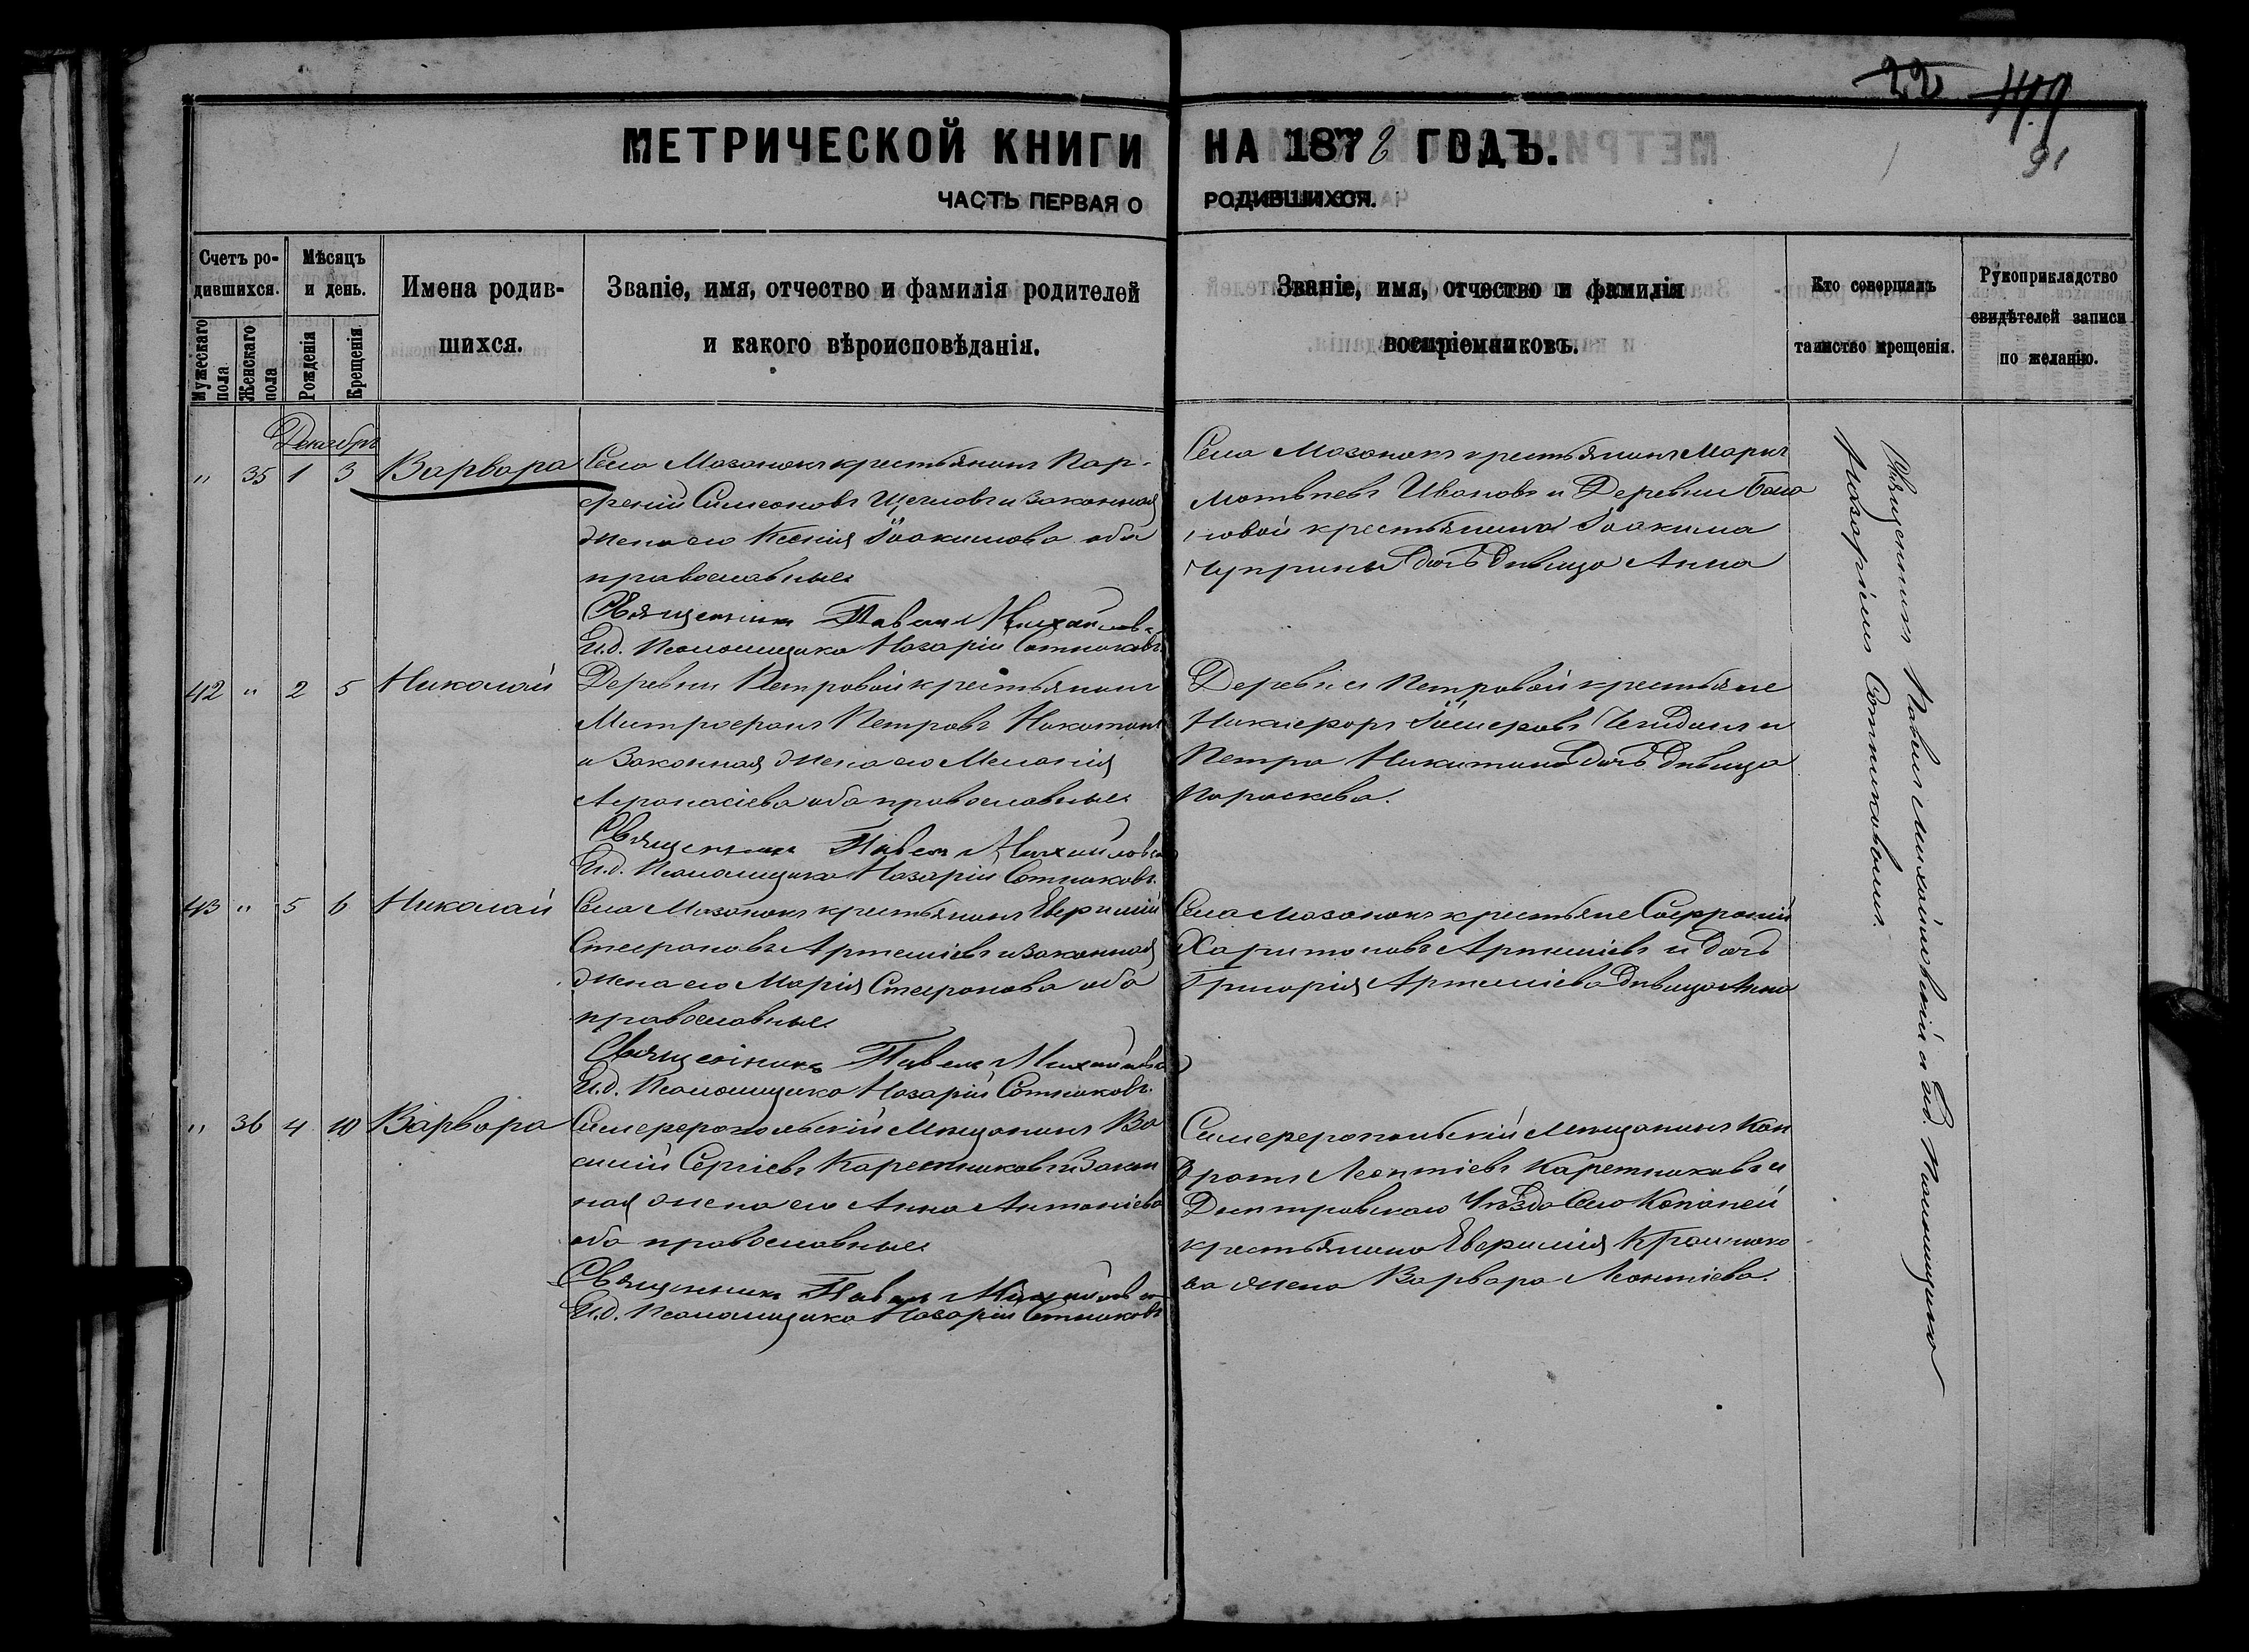 22 449
91
МЕТРИЧЕСКОЙ КНИГИ НА 1878 ГОДЪ.
ЧАСТЬ ПЕРВАЯ О РОДИВШИХСЯ.
Счетъ ро-
дившихся.
Мужескаго пола
Женскаго пола
Мѣсяцъ
и день.
Рожденія
Крещенія
Имена родив-
шихся.
Званіе, имя, отчество и фамилія родителей
и какого вѣроисповѣданія.
Званіе, имя, отчество и фамилія
воспріемниковъ.
Кто совершалъ
таинство крещенія.
Рукоприкладство
свидѣтелей записи
по желанію.
Декабрь
" 35 1 3 Варвара
Села Мазанокъ крестьянинъ Пар-
феній Симеоновъ Щегловъ и законная
жена его Ксенія Іоакимова оба
православные
Священникъ Павелъ Михайловскій
И.д. Псаломщика Назарій Сотниковъ.
Села Мазанокъ крестьянинъ Маркъ
Матвѣевъ Ивановъ и Деревни
крестьянина Іоакима
Чуприны дочь дѣвица Анна
42 " 2 5 Николай
Деревни Петровой крестьянинъ
Митрофанъ Петровъ Никитинъ
и законная жена его Меланія
Афанасіева оба православные
Священникъ Павелъ Михайловскій
И.д. Псаломщика Назарій Сотниковъ.
Деревни Петровой крестьяне
Никифоръ
Петра Никитина дочь дѣвица
Параскева.
43 " 5 6 Николай
Села Мазанокъ крестьянинъ Евфимій
Стефановъ Артеміевъ и законная
жена его Марія Стефанова оба
православные
Священникъ Павелъ Михайловскій
И.д. Псаломщика Назарій Сотниковъ.
Села Мазанокъ крестьяне Софроній
Харитоновъ Артеміевъ и дочь
Григорія Артеміева дѣвица Анна
" 36 4 10 Варвара
Симферопольскій Мѣщанинъ Ва
силій Сергіевъ Каретниковъ и закон
ная жена его Анна Антоніева
оба православные
Священникъ Павелъ Михайловскій
И.д. Псаломщика Назарій Сотниковъ
Симферопольскій Мѣщанинъ Кон
дратъ Леонтіевъ Каретниковъ и
Днѣпровскаго Уѣзда Села Копаней
крестьянина Евфимія
жена Варвара Леонтіева.
Священникъ Павелъ Михайловскій съ и.д. Псаломщика
Назаріемъ Сотниковымъ.